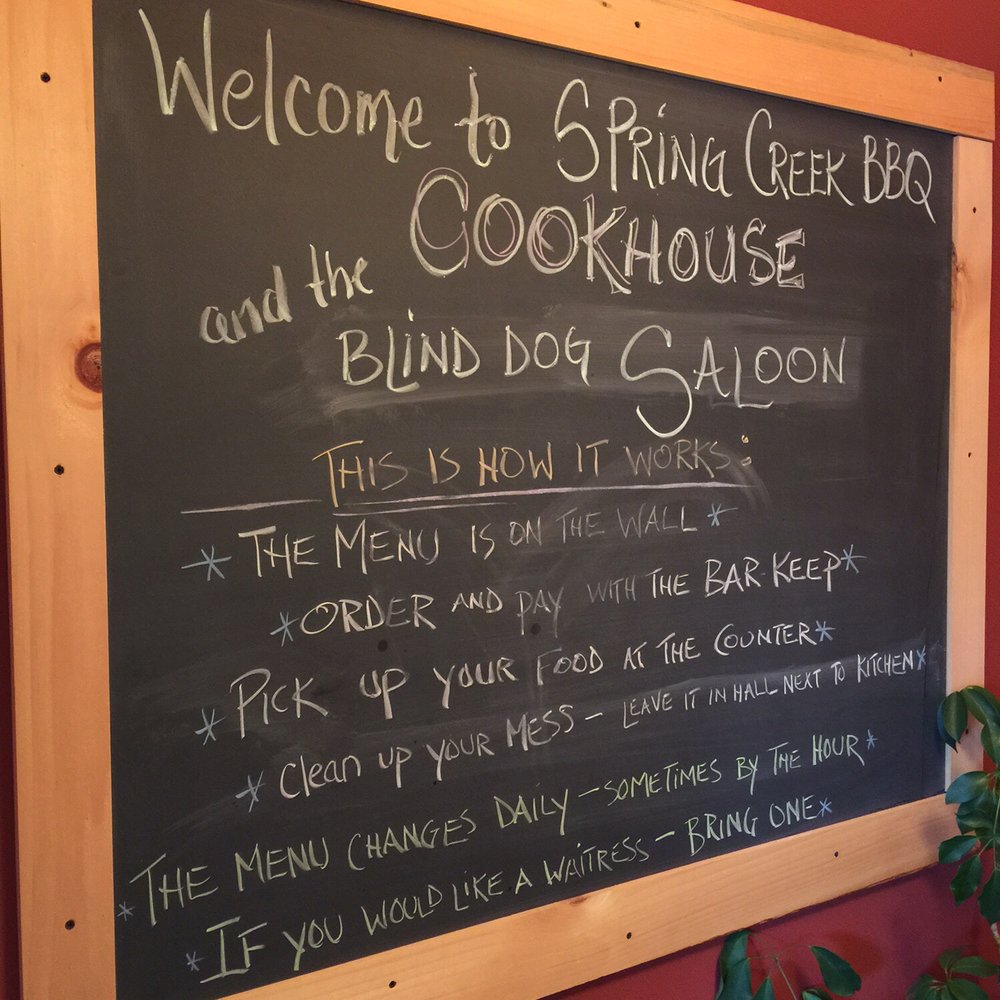 Welcome to SPRING CREEK BBQ
COOKHOUSE
and the
BLIND DOG SALOON
THIS IS HOW IT WORKS:
* THE MENU IS ON THE WALL *
* ORDER AND PAY WITH THE BAR KEEP *
* PICK UP YOUR FOOD AT THE COUNTER *
* Clean UP YOUR MESS – LEAVE IT IN HALL NEXT TO KITCHEN *
* THE MENU CHANGES DAILY – SOMETIMES BY THE HOUR *
* IF YOU WOULD LIKE A WAITRESS – BRING ONE *